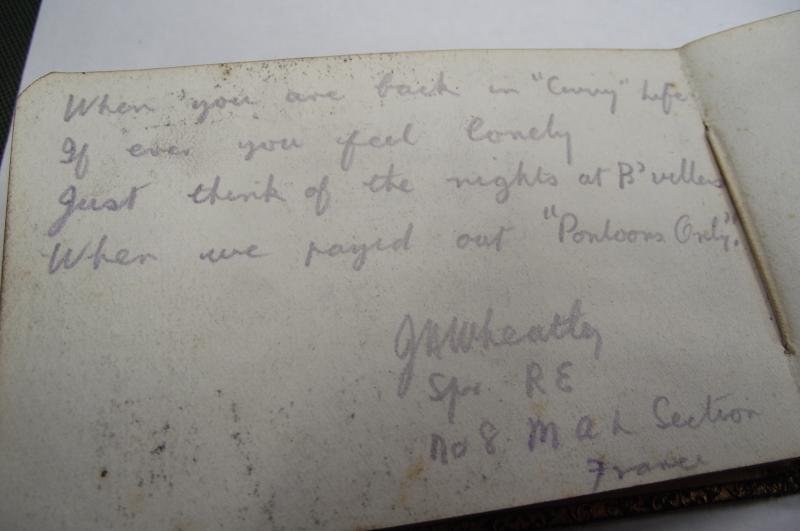 When you are back in "Civvy" Life
If ever you feel lonely
Just think of the nights at B'villers
When we payed out "Pontoons Only".
J H Wheatley
Spr R E
No 8 M A L Section
France